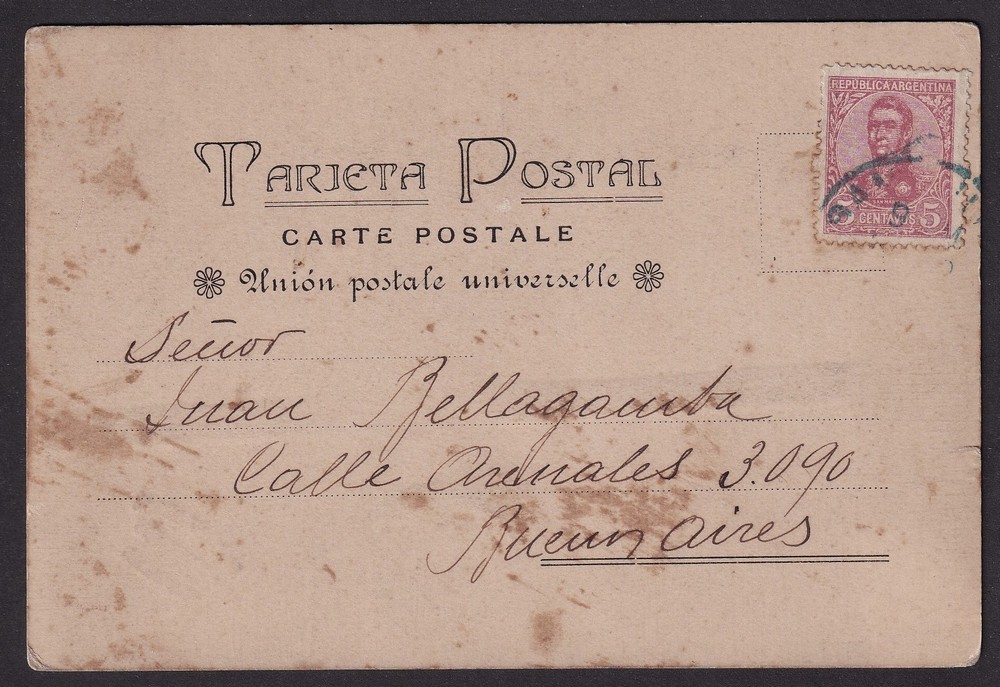 TARJETA POSTAL
CARTE POSTALE
Unión postale universelle
REPÚBLICA ARGENTINA
SAN MARTIN
CENTAVOS 5
Señor
Juan Bellagamba
Calle Arenales 3.090
Buenos Aires